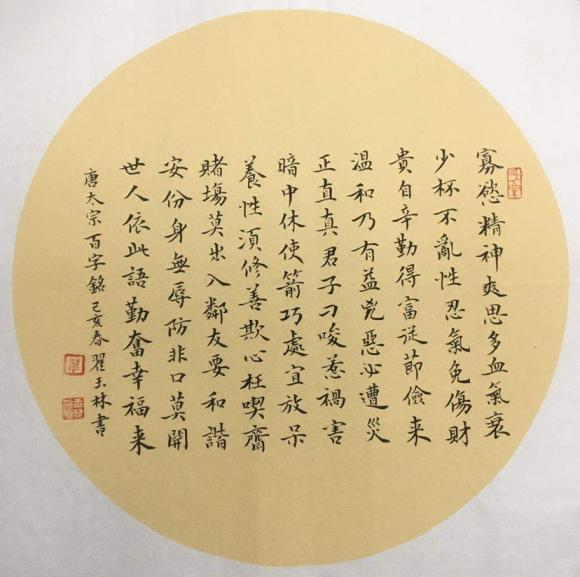 寡慾精神爽思多血氣衰
少杯不亂性忍氣免傷財
貴自辛勤得富從節儉来
温和乃有益兇惡必遭災
正直真君子刁唆惹禍害
暗中休使箭巧處宜放呆
養性須修善欺心枉喫齋
賭場莫出入鄰友要和諧
安份身無辱防非口莫開
世人依此語勤奮幸福来
唐太宗百字銘己亥春翟玉林書